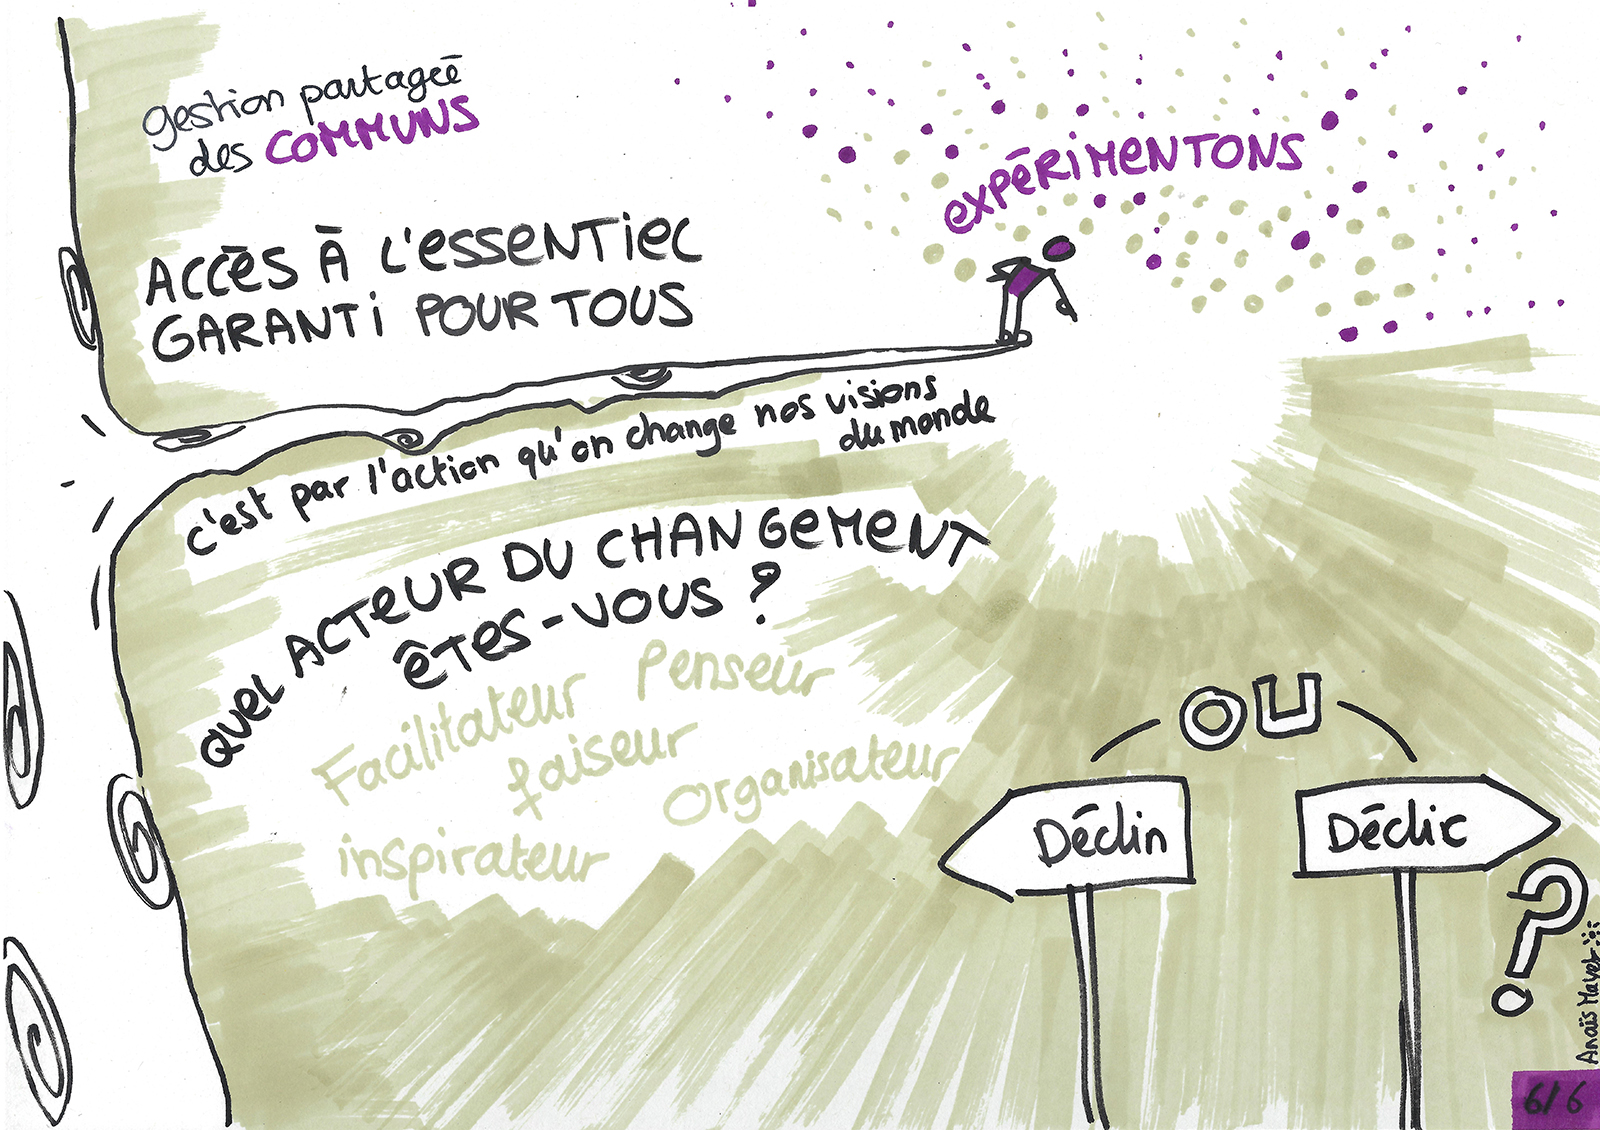 gestion partageé
des COMMUNS
ACCÈS À L'ESSENTIEL
GARANTI POUR TOUS
EXPÉRIMENTONS
c'est par l'action qu'on change nos visions
du monde
QUEL ACTEUR DU CHANGEMENT
ÊTES-VOUS ?
Facilitateur Penseur
faiseur
organisateur
inspirateur
OU
Déclin
Déclic
?
Anaïs Mayet
6/6